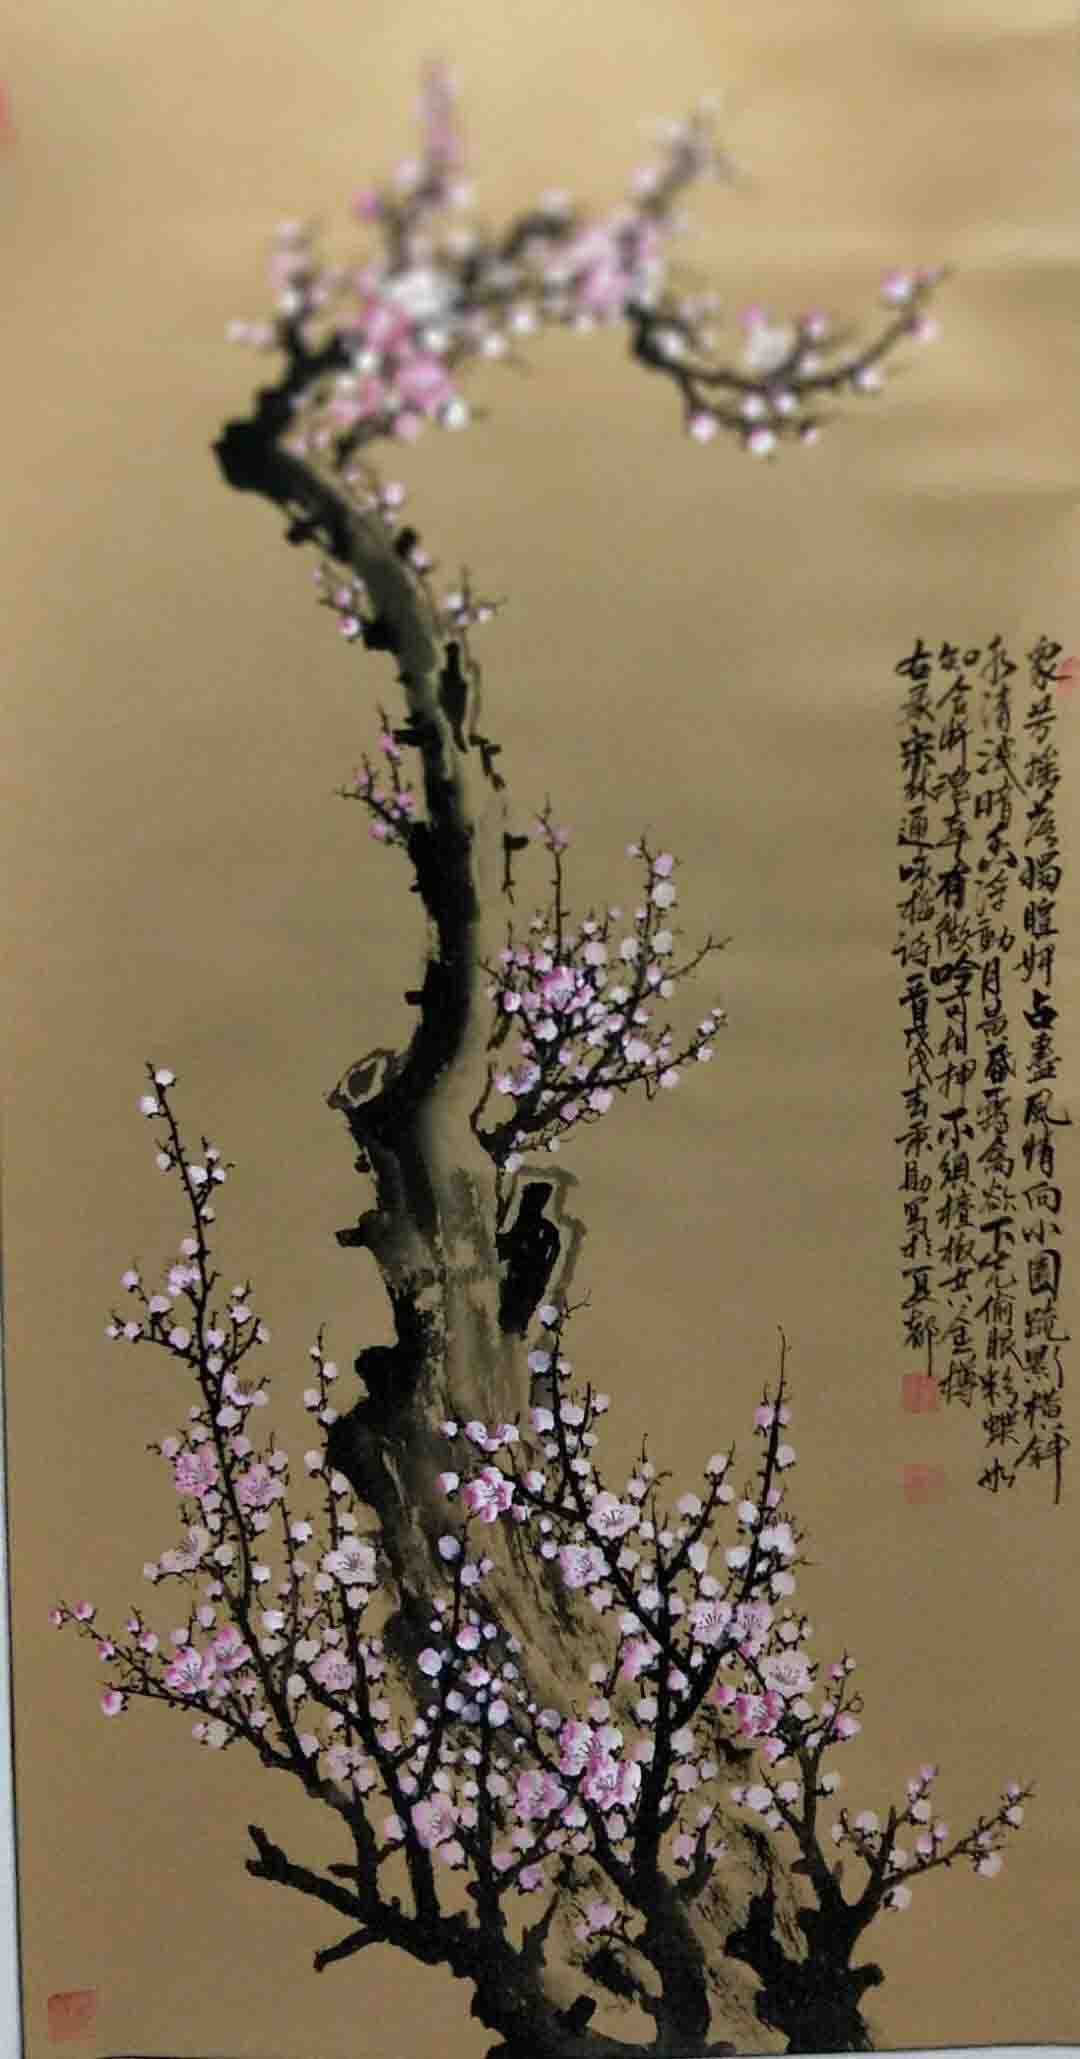 众芳摇落独暄妍占尽風情向小園疏影横斜
水清浅暗香浮動月黄昏霜禽欲下先偷眼粉蝶如
知合断魂幸有微吟可相狎不須檀板共金樽
右录宋林逋咏梅诗一首戊戌春秉勛寫於夏都